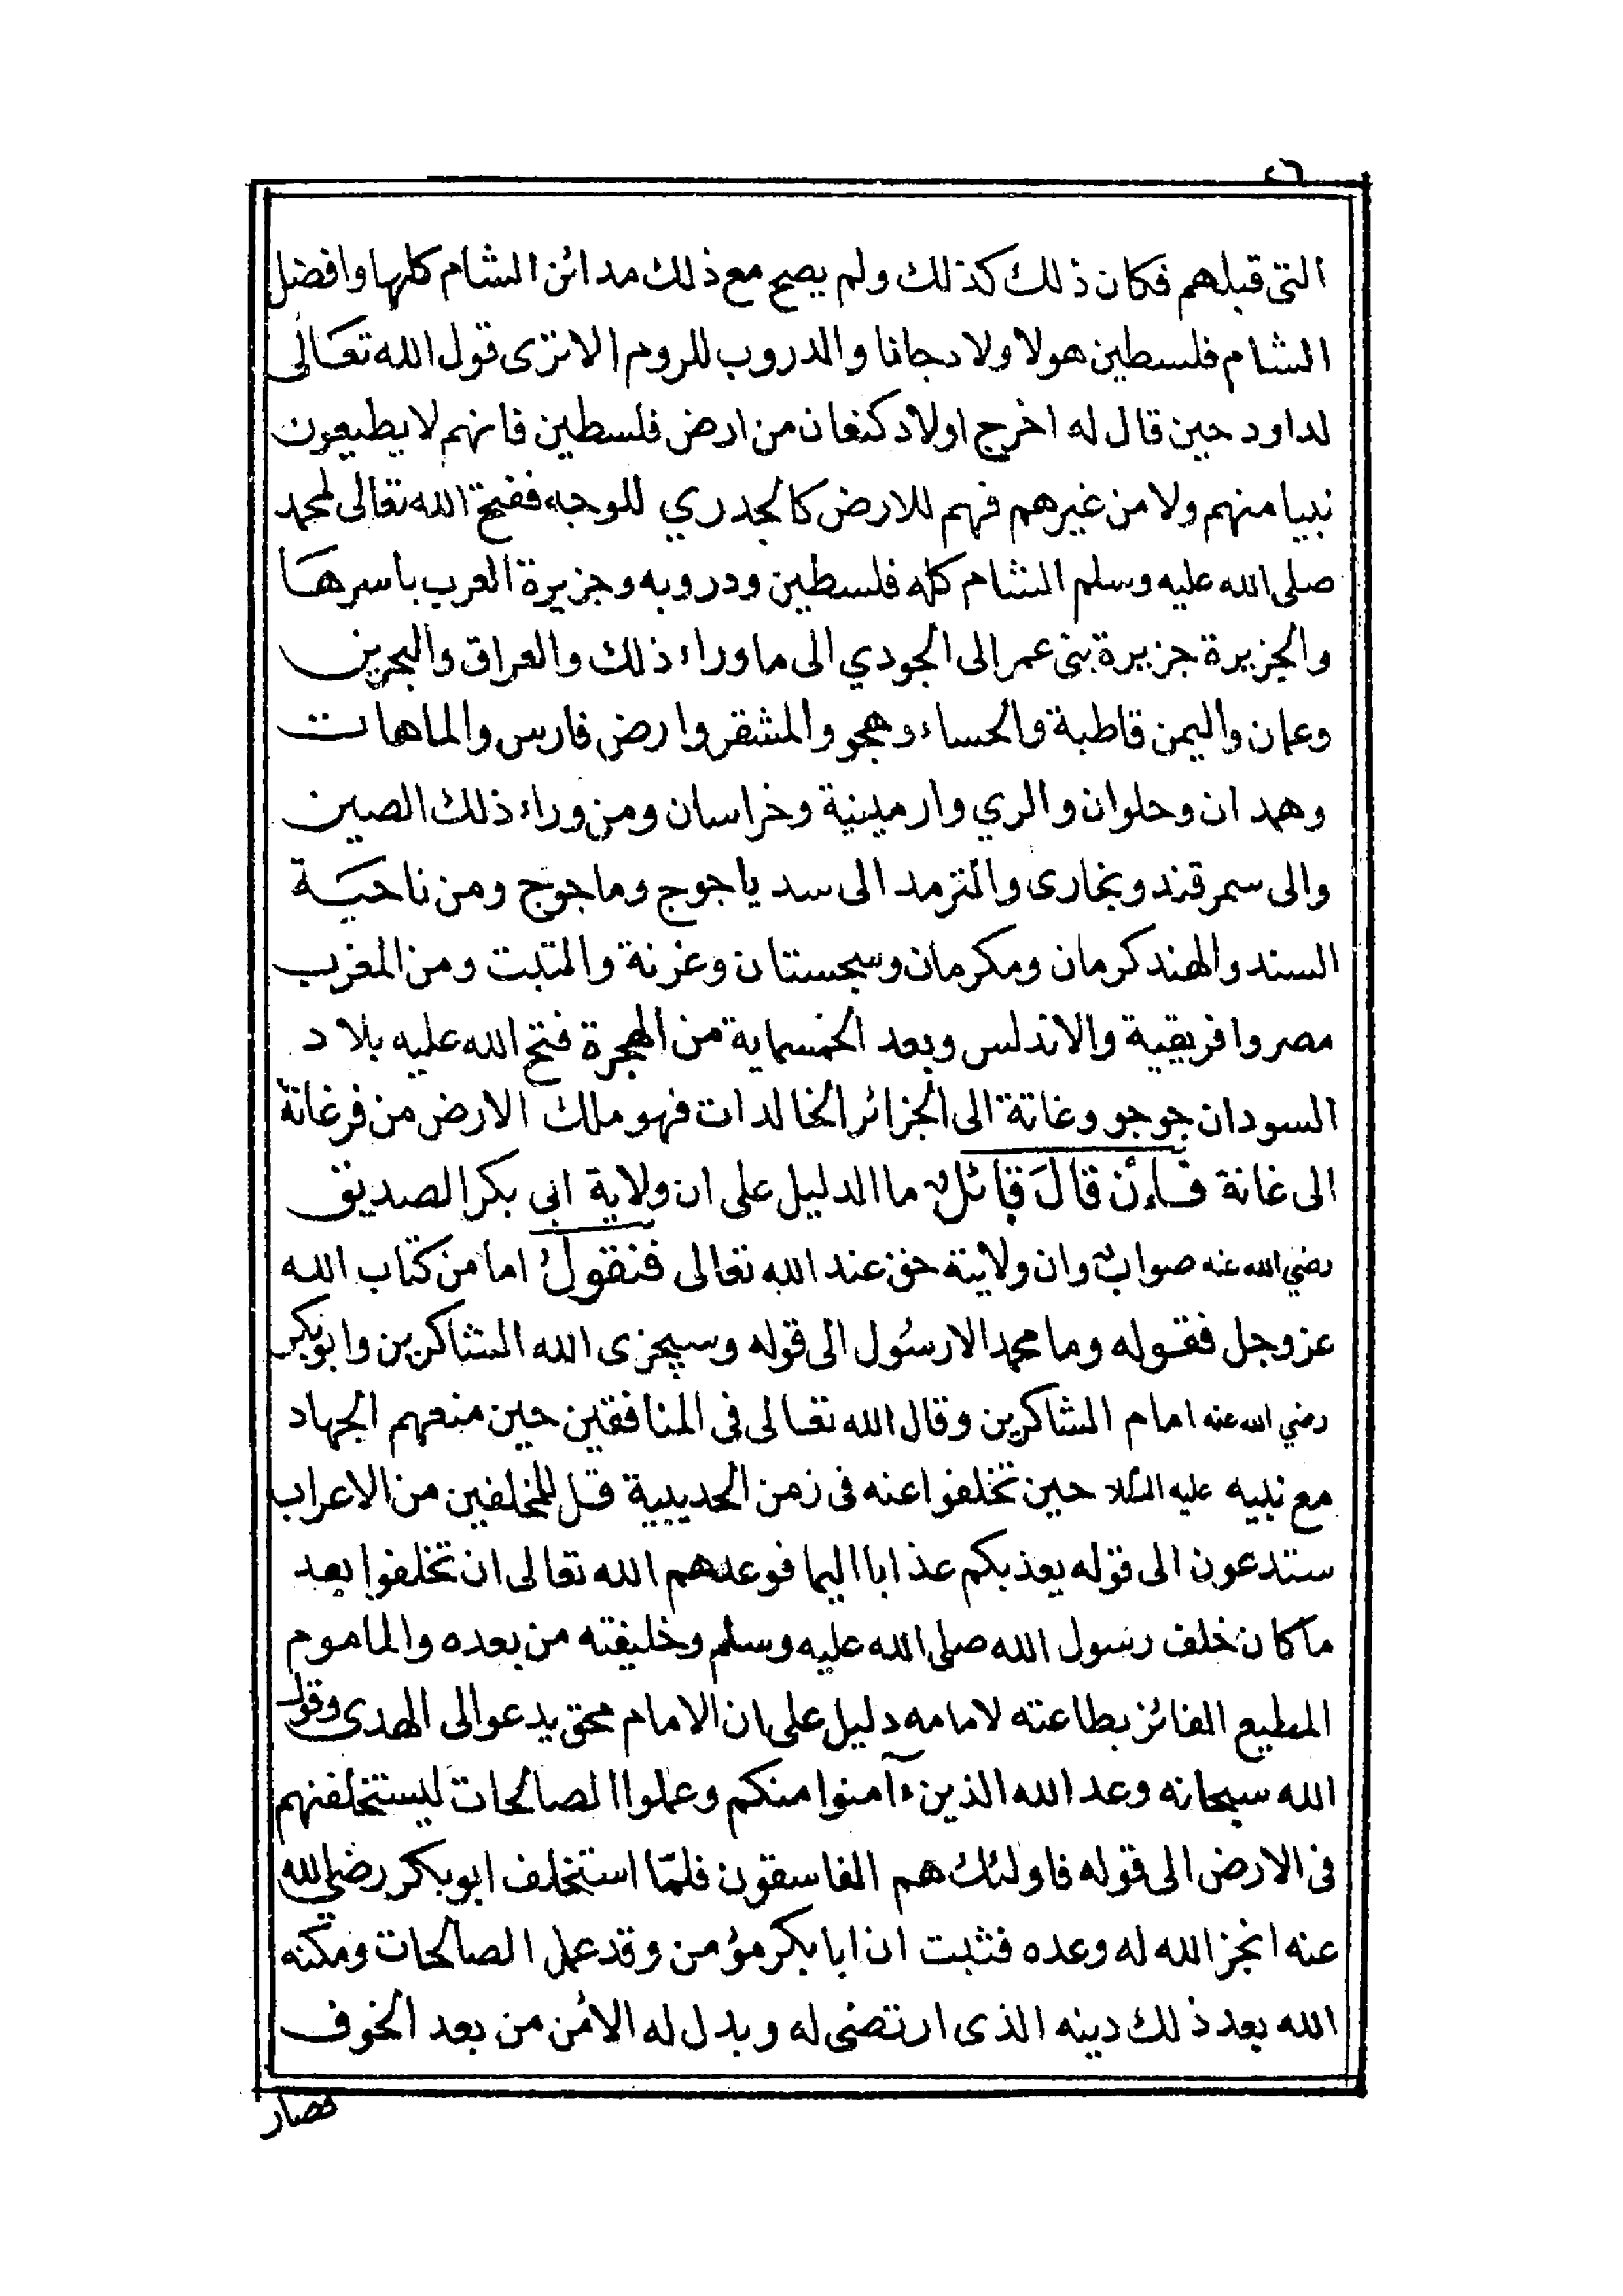 ٤٦
التى قبلهم فكان ذلك كذلك ولم يصح مع ذلك مدائن الشام كلها وافضل
الشام فلسطين هولا ولا دجانا والدروب للروم الا ترى قول الله تعَالَى
لداود حين قال له اخرج اولاد كنعان من ارض فلسطين فانهم لا يطيعون
نبيا منهم ولا من غيرهم فهم للارض كالجدري للوجه ففتح الله تعالى لمحمد
صلى الله عليه وسلم الشام كله فلسطين ودروبه وجزيرة العرب باسرهَا
والجزيرة جزيرة بنى عمر الى الجودي الى ما وراء ذلك والعراق والبحرين
وعمان واليمن قاطبة والحساء وهجر والمشقر وارض فارس والماهات
وهمدان وحلوان والري وارمينية وخراسان ومن وراء ذلك الصين
والى سمرقند وبخارى والترمد الى سد ياجوج وماجوج ومن ناحيَة
السند والهند كرمان ومكرمان وسجستان وغزنة والتبت ومن المغرب
مصر وافريقية والاندلس وبعد الخمسماية من الهجرة فتح الله عليه بلاد
السودان جوجو وغانة الى الجزائر الخالدات فهو ملك الارض من فرغانة
الى غانة فإن قالَ قائلٌ ما الدليل على ان ولاية ابي بكر الصديق
رضي الله عنه صوابٌ وان ولايته حق عند الله تعالى فنقولُ اما من كتاب الله
عز وجل فقوله وما محمد الا رسُول الى قوله وسيجزى الله الشاكرين وابو بكر
رضي الله عنه امام الشاكرين وقال الله تعالى فى المنافقين حين منعهم الجهاد
مع نبيه عليه السلام حين تخلفوا عنه فى زمن الحديبية قل للمخلفين من الاعراب
ستدعون الى قوله يعذبكم عذابا اليما فوعدهم الله تعالى ان تخلفوا بعد
ما كان خلف رسول الله صلى الله عليه وسلم وخليفته من بعده والماموم
المطيع الفائز بطاعته لامامه دليل على ان الامام محق يدعوا الى الهدى وقول
الله سبحانه وعد الله الذين ءآمنوا منكم وعملوا الصالحات ليستخلفنهم
فى الارض الى قوله فاولئك هم الفاسقون فلمّا استخلف ابو بكر رضي الله
عنه انجز الله له وعده فثبت ان ابا بكر مؤمن وقد عمل الصالحات ومكنه
الله بعد ذلك دينه الذى ارتضى له وبدل له الأمن من بعد الخوف
فصار